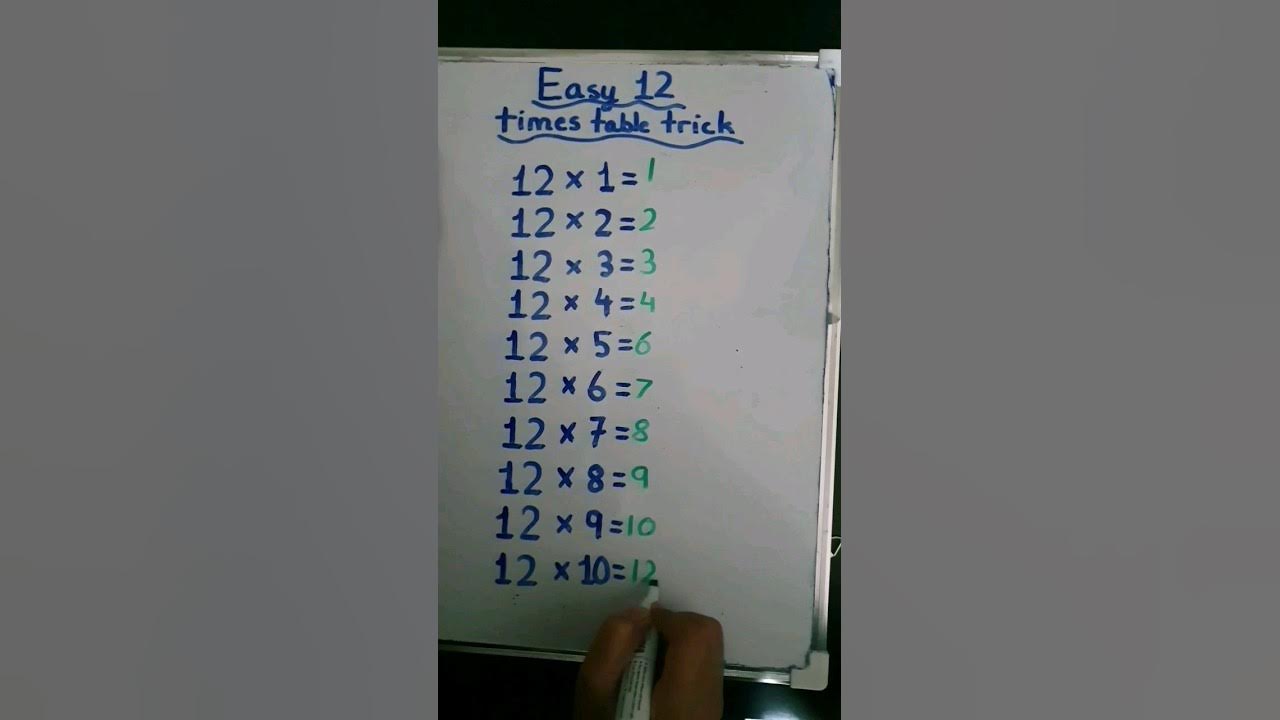 Easy 12
times table trick
12 × 1 = 1
12 × 2 = 2
12 × 3 = 3
12 × 4 = 4
12 × 5 = 6
12 × 6 = 7
12 × 7 = 8
12 × 8 = 9
12 × 9 = 10
12 × 10 = 12